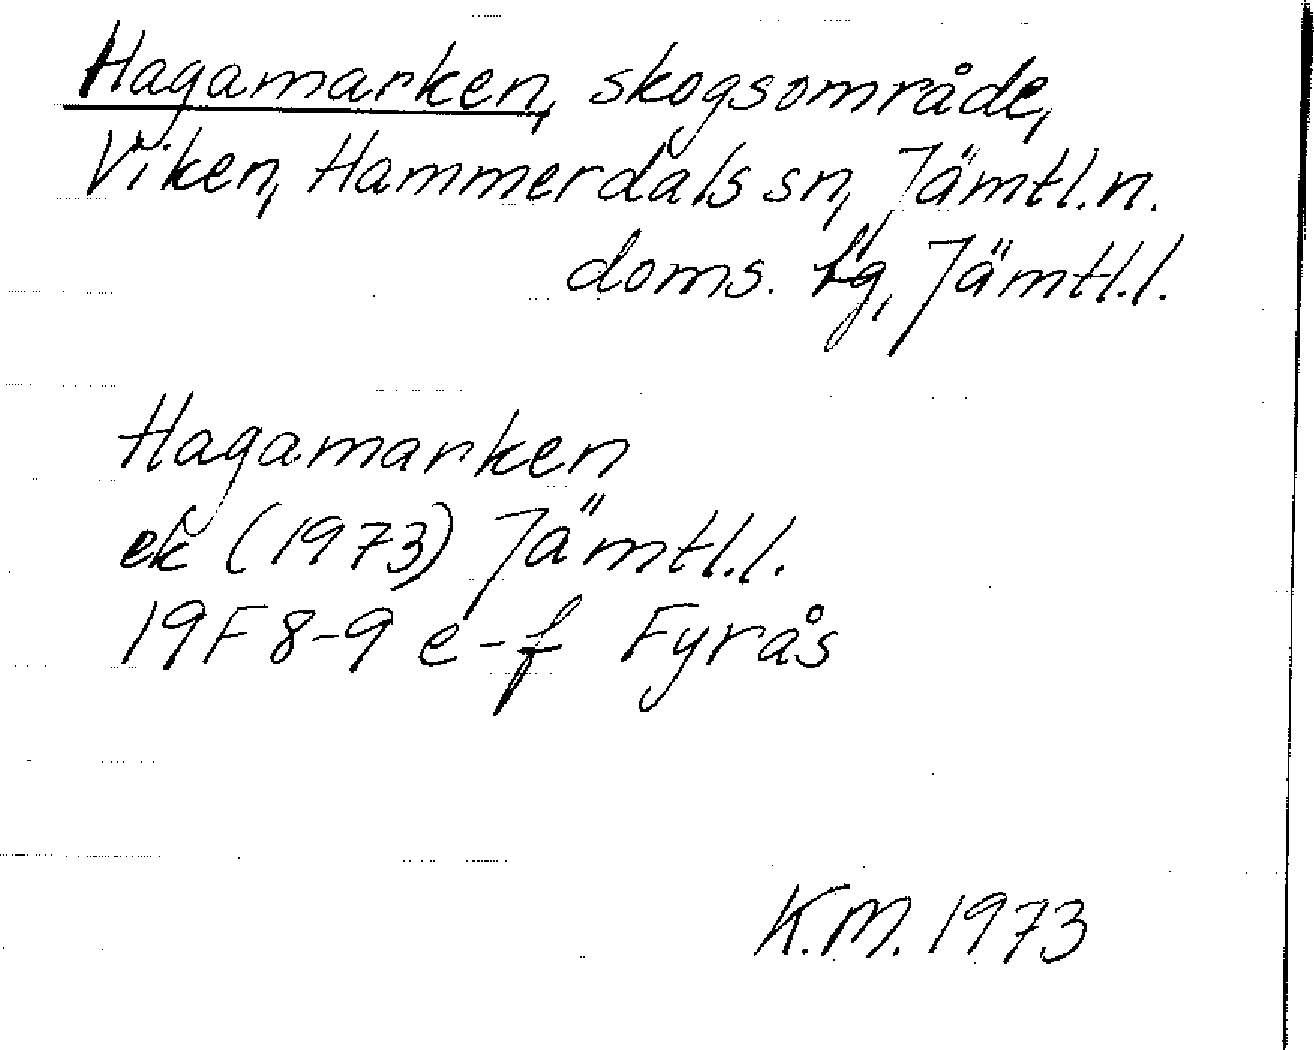 Hagamarken, skogsområde,
Viken, Hammerdals sn, Jämtl.n.
doms. lg, Jämtl.l.
Hagamarken
ek (1973) Jämtl.l.
19F 8-9 e-f Fyrås
K.M. 1973